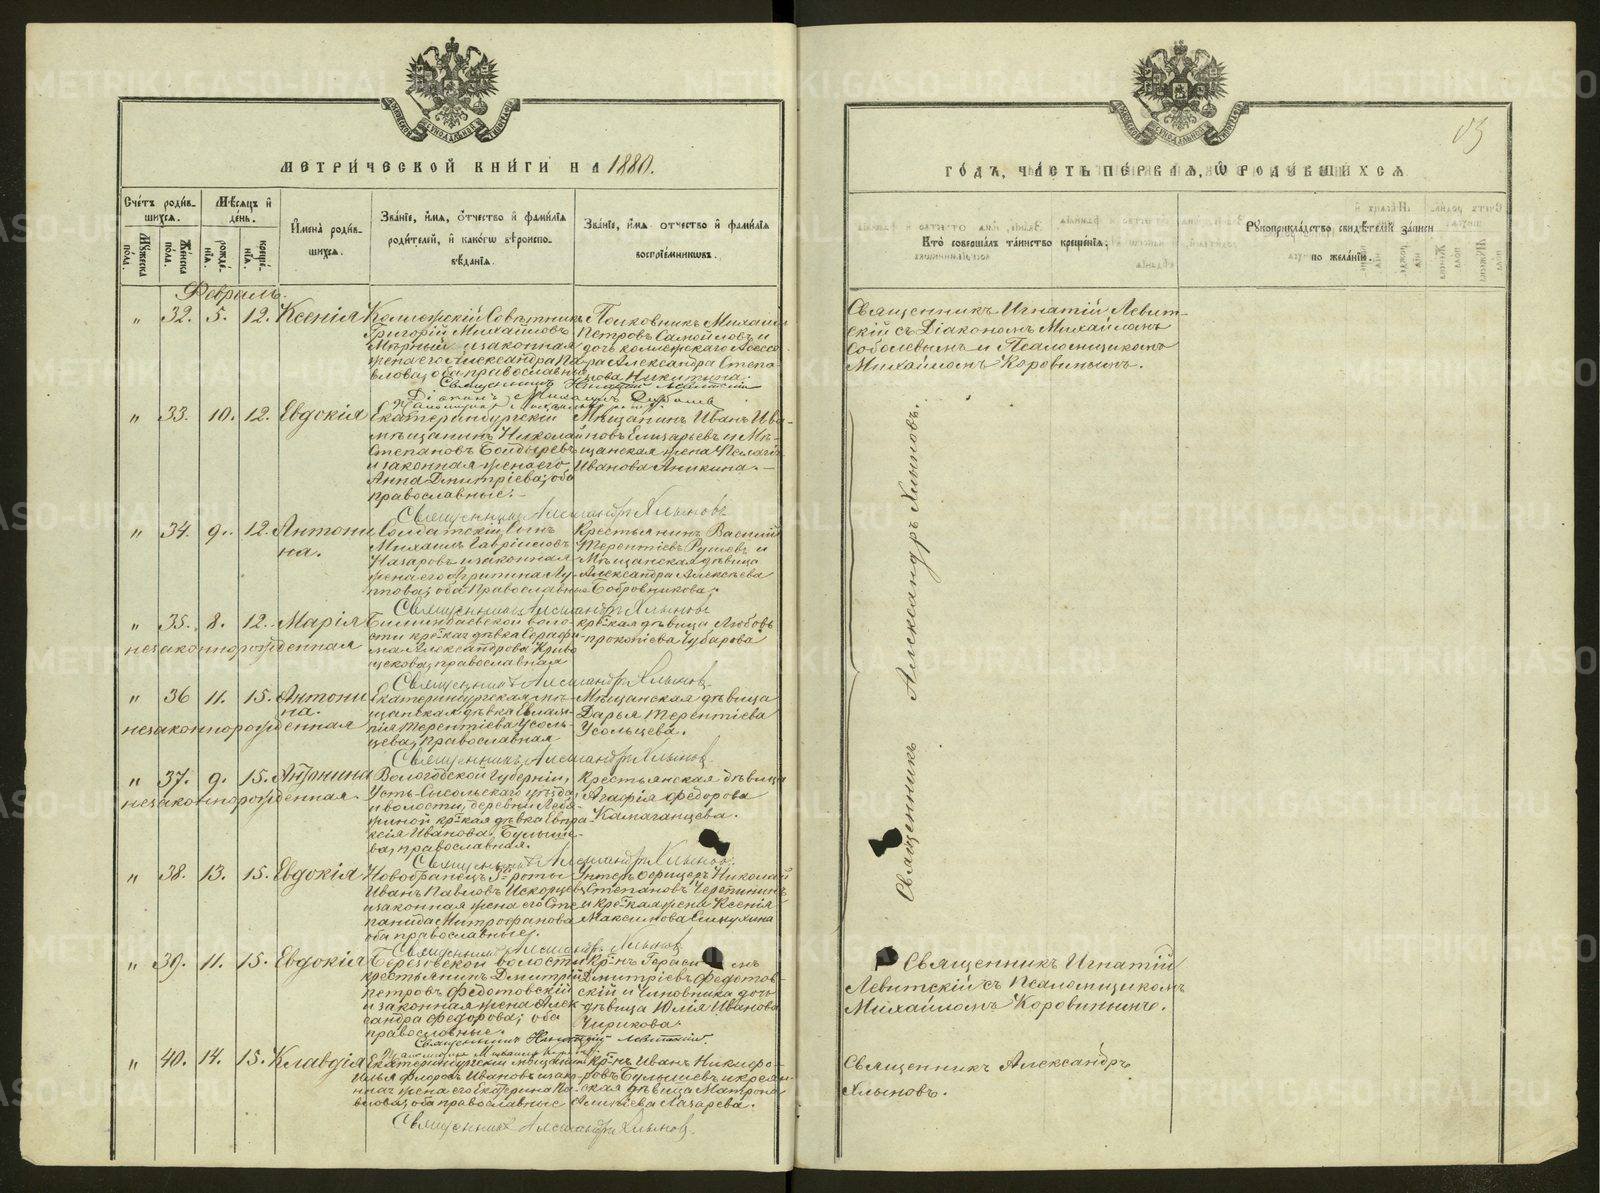 МЕТРИЧЕСКОЙ КНИГИ НА 1880.
Счетъ родив-
шихся.
Мѣсяцъ и
день.
Мужеска
пола.
Женска
пола.
рожде-
нія.
креще-
нія.
Имена родив-
шихся.
Званіе, имя, отчество и фамилія
родителей, и какогѡ вѣроиспо-
вѣданія.
Званіе, имя отчество и фамилія
воспріемникѡвъ.
Февраль.
„ 32. 5. 12. Ксенія
Коллежскій Совѣтникъ
Григорій Михайловъ
и законная
жена его Александра Па-
влова, оба православные
Полковникъ Михаилъ
Петровъ Самойловъ и
дочь коллежскаго Ассессо-
ра Александра Степа-
нова Никитина.
Священникъ Игнатій Левитскій
„ 33. 10. 12. Евдокія
Екатеринбургскій
мѣщанинъ Николай
Степановъ Болдыревъ
и законная жена его
Анна Дмитріева, оба
православные.
Мѣщанинъ Иванъ Ива-
новъ Елизарьевъ и Мѣ-
щанская жена Пелагія
Иванова Аникина.
Священникъ Александръ Хлыновъ
„ 34. 9. 12. Антони
на.
Солдатскій сынъ
Михаилъ Гавріиловъ
Назаровъ и законная
жена его Агрипина Лу-
пова, оба Православные
Крестьянинъ Василій
Терентіевъ Русловъ и
Мѣщанская дѣвица
Александра Алексѣева
Бобровникова.
Священникъ Александръ Хлыновъ
„ 35. 8. 12. Марія
незаконнорожденная
Билимбаевской воло-
сти крест-кая дѣвка Серафи-
ма Александрова Криво
щекова, православная
кр-кая дѣвица Любовь
прокопіева Чубарова
Священникъ Александръ Хлыновъ
„ 36 11. 15. Антони
на.
незаконнорожденная
Екатеринбургская мѣ-
щанская дѣвка Евлам-
пія Терентіева Усоль-
цева, православная
Мѣщанская дѣвица
Дарья Терентіева
Усольцева.
Священникъ Александръ Хлыновъ
„ 37. 9. 15. Антонина
незаконнорожденная.
Вологодской Губерніи,
Усть-Сысольскаго уѣзда
и волости, деревни
кр-кая дѣвка Евпра-
ксія Иванова Булыше-
ва, православная.
Крестьянская дѣвица
Агафія Федорова
Камаганцева.
Священникъ Александръ Хлыновъ
„ 38. 13. 15. Евдокія
Новобранецъ 5й роты
Иванъ Павловъ Искорцевъ
и законная жена его Сте-
панида Митрофанова
оба православные.
Унтеръ офицеръ Николай
Степановъ Черепининъ
и кр-кая жена Ксенія
Максимова
Священникъ Александръ Хлыновъ
„ 39. 11. 15. Евдокія
Березовской волости
крестьянинъ Дмитрій
петровъ Федотовскій
и законная жена Алек-
сандра Федорова; оба
православные.
Кр-нъ Герасимъ
Дмитріевъ Федотов-
скій и Чиновника дочь
дѣвица Юлія Иванова
Чирикова.
Священникъ Игнатій Левитскій.
„ 40. 14. 15. Клавдія
Екатеринбургскій мѣщанинъ
Илья Флоровъ Ивановъ и закон-
ная жена его Екатерина Па-
влова; оба православные
Кр-нъ Иванъ Никифо-
ровъ Булышевъ и крестьян-
ская дѣвица Матрона
Алексѣева Лазарева.
Священникъ Александръ Хлыновъ.
ГОДЪ, ЧАСТЬ ПЕРВАЯ, Ѡ РОДИВШИХСЯ
Кто совершалъ таинство крещенія.
Рукоприкладство свидѣтелей записи
по желанію.
Священникъ Игнатій Левит-
скій съ Діакономъ Михаиломъ
Соболевымъ и Псаломщикомъ
Михаиломъ Коровинымъ.
Священникъ Александръ Хлыновъ.
Священникъ Игнатій
Левитскій съ Псаломщикомъ
Михаиломъ Коровинымъ.
Священникъ Александръ
Хлыновъ.
METRIKI.GASO-URAL.RU